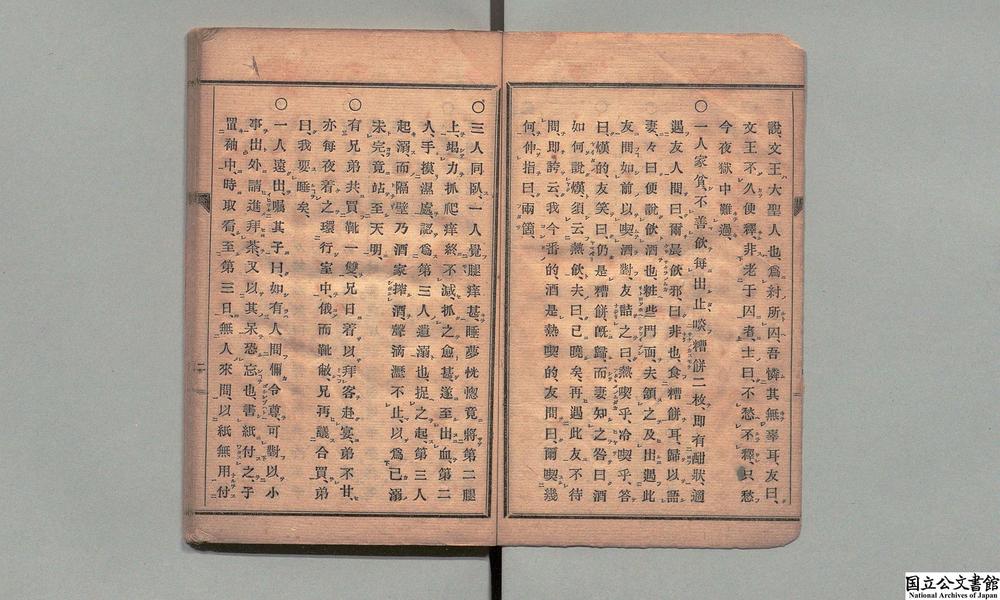 說、文王大聖人也、爲紂所囚、吾憐其無辜耳、友曰、
文王不久便釋、非老于囚者、士曰、不愁不釋、只愁
今夜獄中難過、
〇一人家貧、不善飮、每出止啖糟餠二枚、即有酣狀、適
遇友人問曰、爾晨飮邪、曰非也、食糟餠耳、歸以語
妻、々曰、便說飮酒也、粧些門面、夫頷之、及出遇此
友、問如前、以喫酒對、友詰之曰、熱喫乎、冷喫乎、答
曰、熯的、友笑曰、仍是糟餠、旣歸而妻知之、咎曰、酒
如何說熯、須云熱飮、夫曰、已曉矣、再遇此友、不待
問、即誇云、我今番的酒是熱喫的、友問曰、爾喫幾
何、伸指曰、兩箇、
〇三人同臥、一人覺腿痒甚、睡夢恍惚、竟將第二腿
上、竭力抓爬、痒終不減、抓之愈甚、遂至出血、第二
人、手摸濕處、認爲第三人遺溺也、捉之起、第三人
起溺、而隔壁乃酒家、搾酒聲滴瀝不止、以爲已溺
未完、竟站至天明、
〇有兄弟共買靴一雙、兄日着以拜客赴宴、弟不甘、
亦每夜着之、環行室中、俄而靴敝、兄再議合買、弟
曰、我要睡矣、
〇一人遠出、囑其子曰、如有人問儞令尊、可對以小
事出外、請進拜茶、又以其呆恐忘也、書紙付之、子
置袖中、時取看、至第三日、無人來問、以紙無用、付
国立公文書館
National Archives of Japan